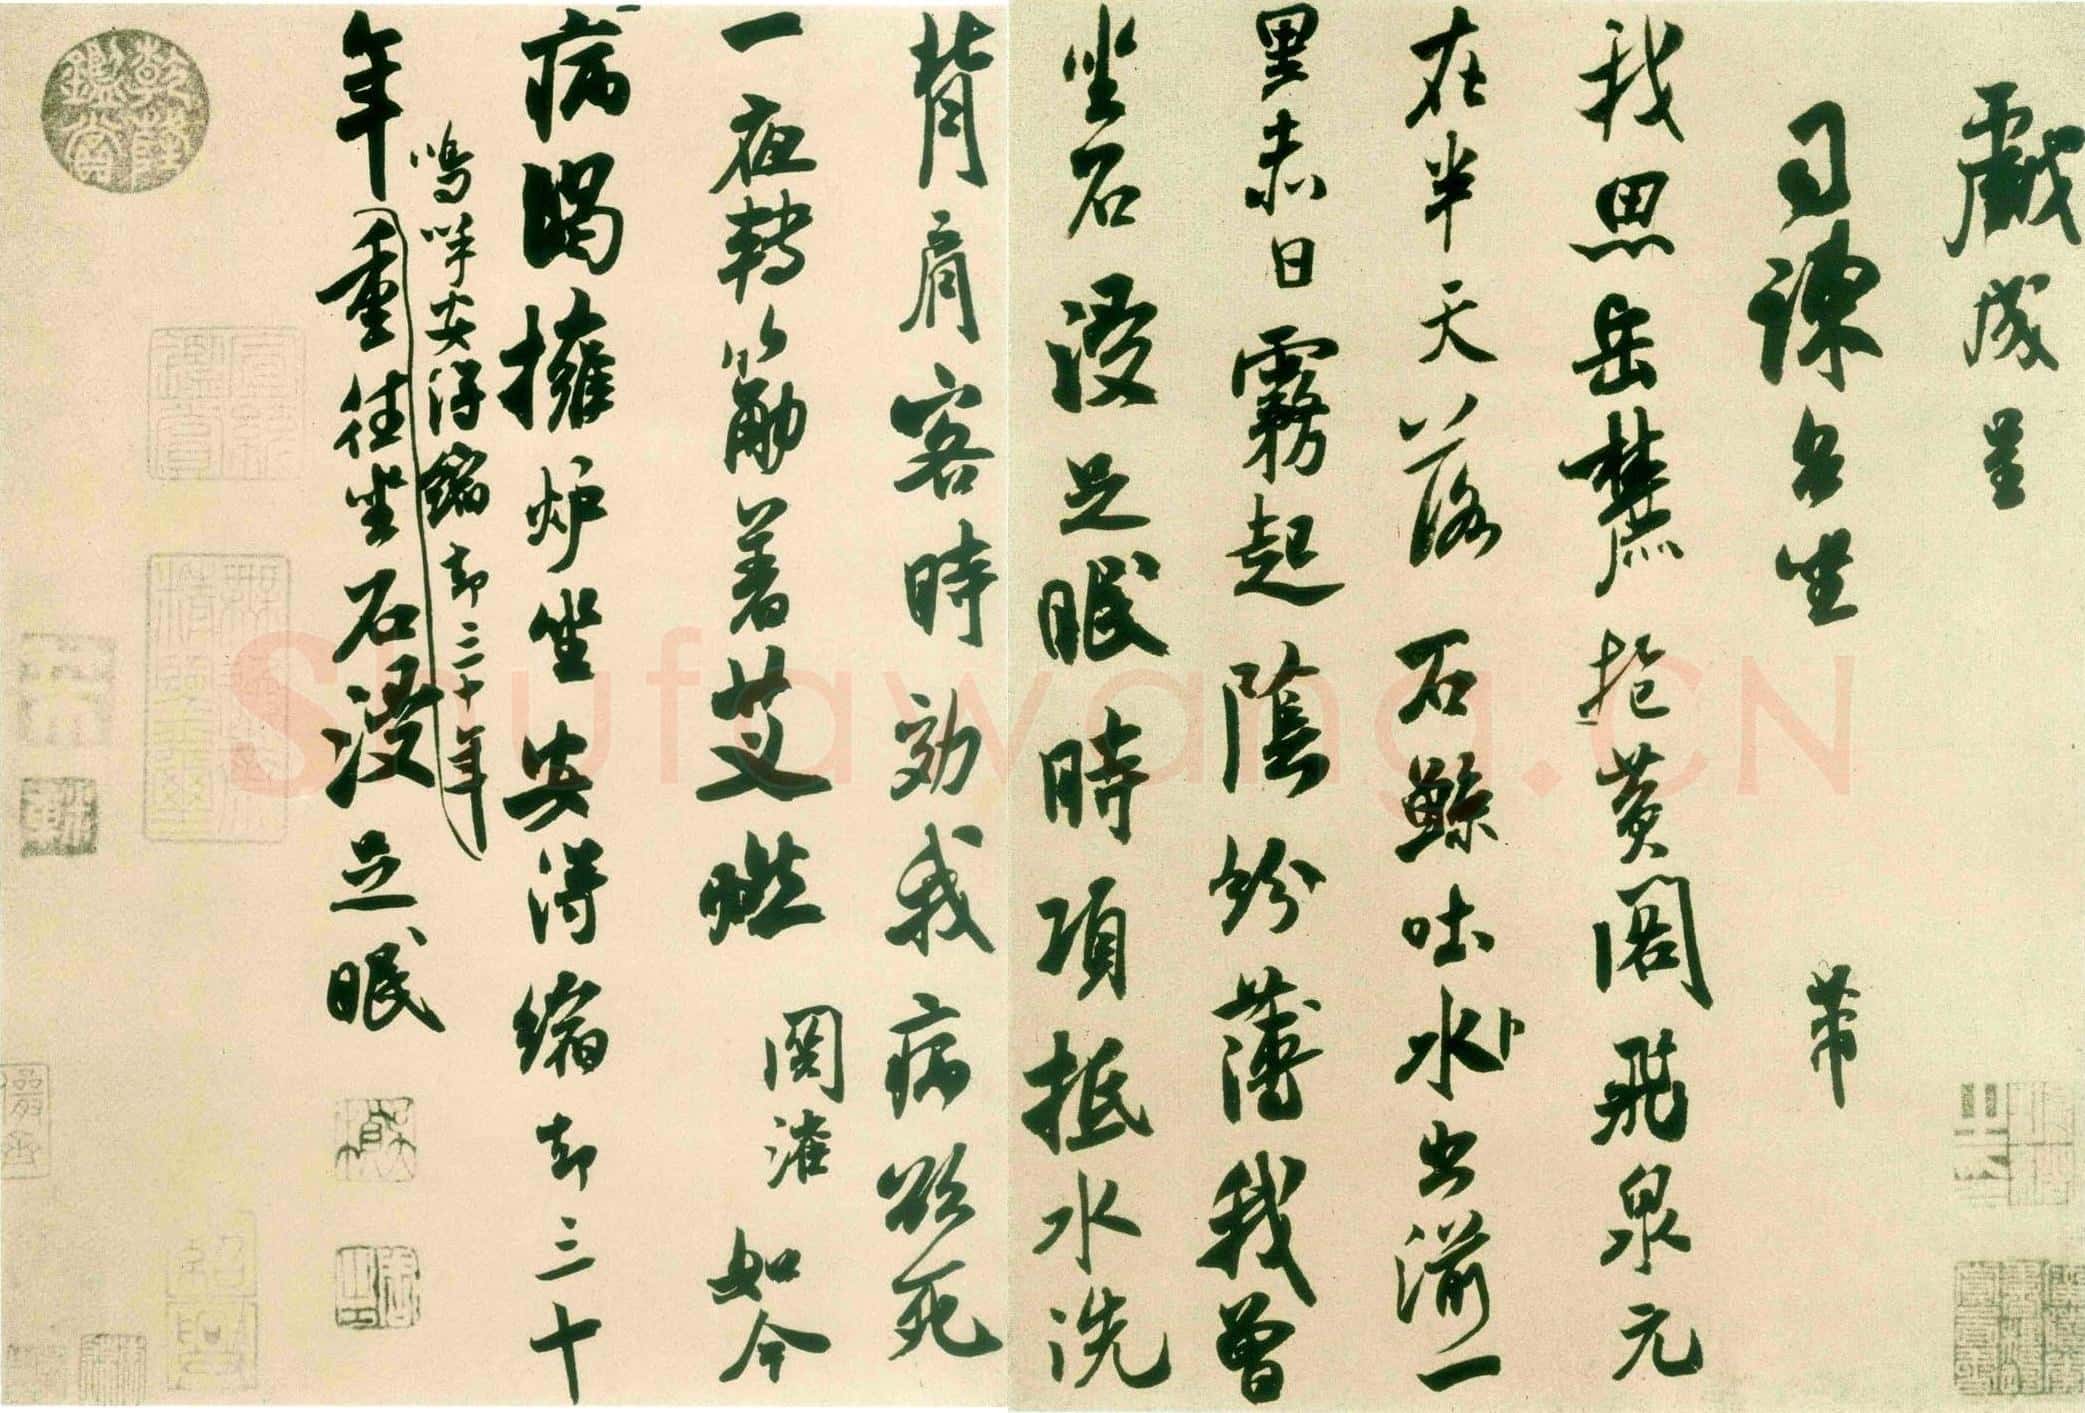 戲成呈
司諫台坐 芾
我思岳麓抱黃閣飛泉元
在半天落石鯨吐水出湔一
里赤日霧起陰紛薄我曾
坐石浸足眠時項抵水洗
背肩客時効我病欲死
一夜轉筋著艾燃 関灌 如今
病渴擁炉坐安得縮却三十
嗚呼安得縮却三十年
年重往坐石浸足眠
乾隆鑑賞
Shufawang.CN